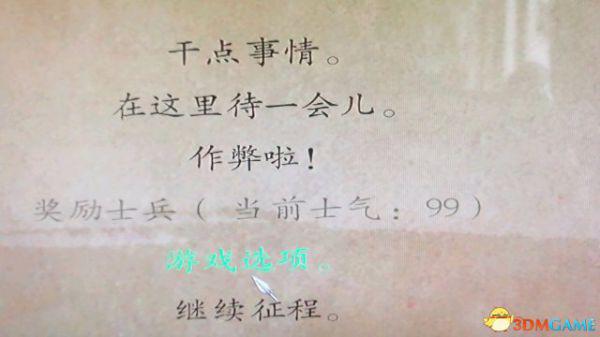 干点事情。
在这里待一会儿。
作弊啦！
奖励士兵（ 当前士气：99）
游戏选项。
继续征程。
3DMGAME